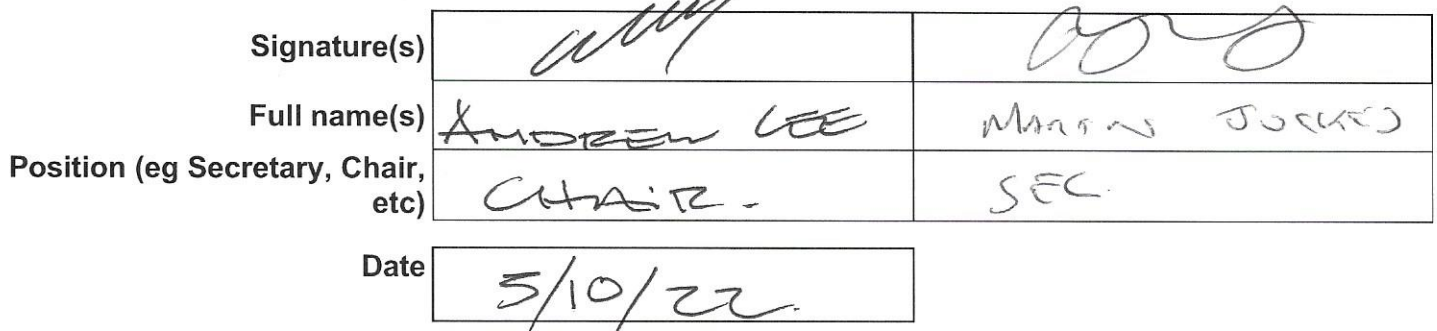 Signature(s)
Full name(s) ANDREW LEE MARTIN
Position (eg Secretary, Chair,
etc) CHAIR. SEC.
Date 5/10/22.